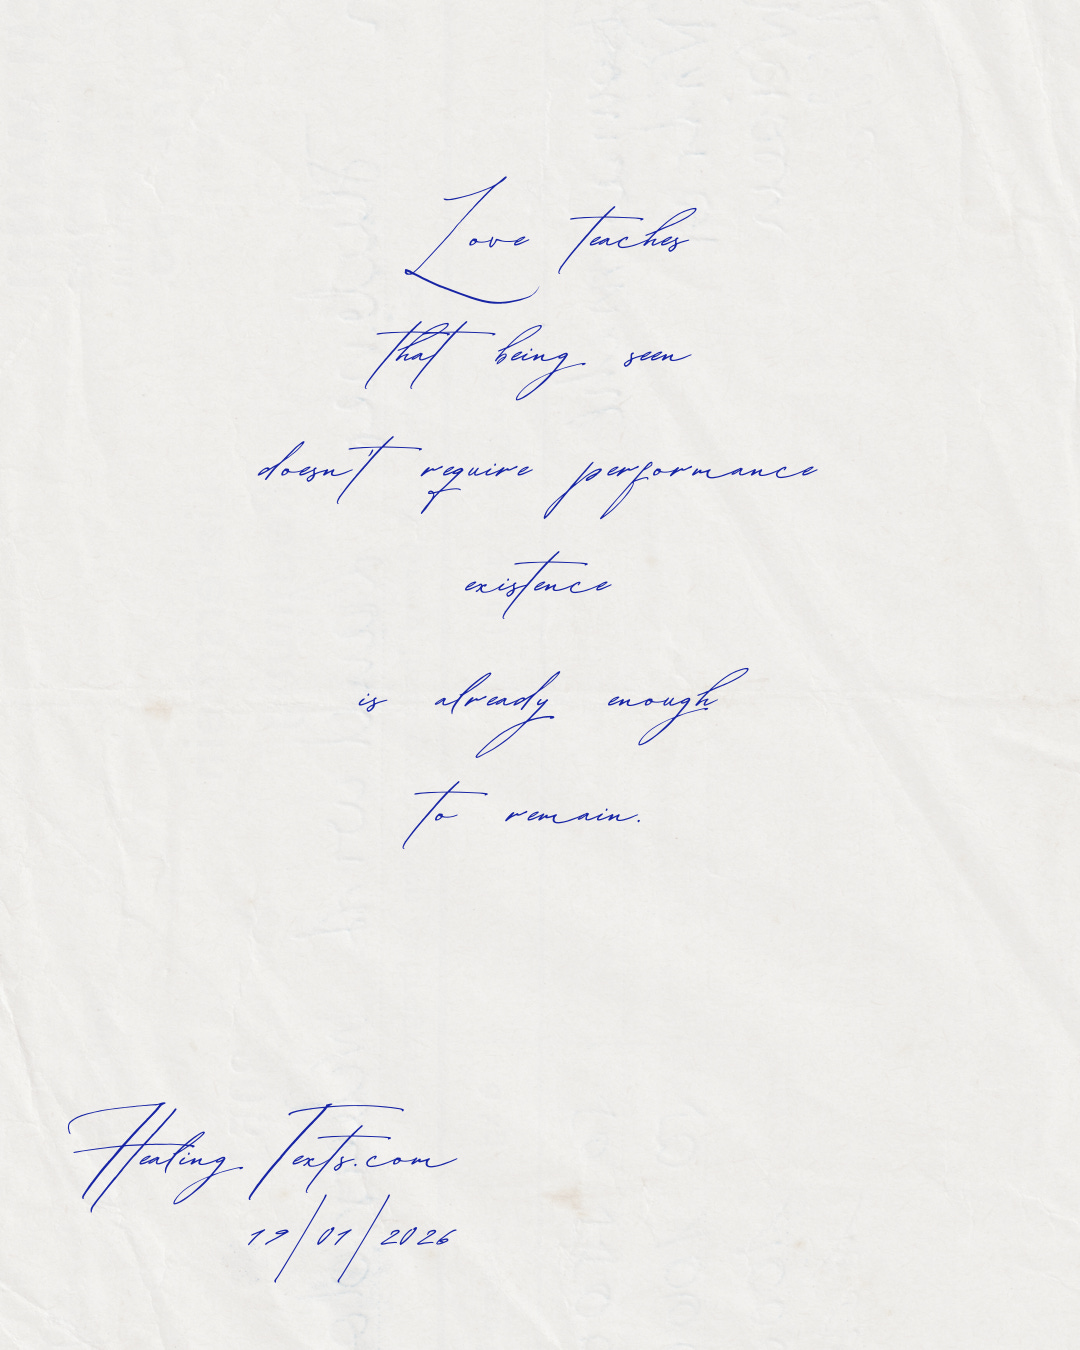 Love teaches
that being seen
doesn't require performance
existence
is already enough
to remain.
Healing Texts.com
19/01/2026